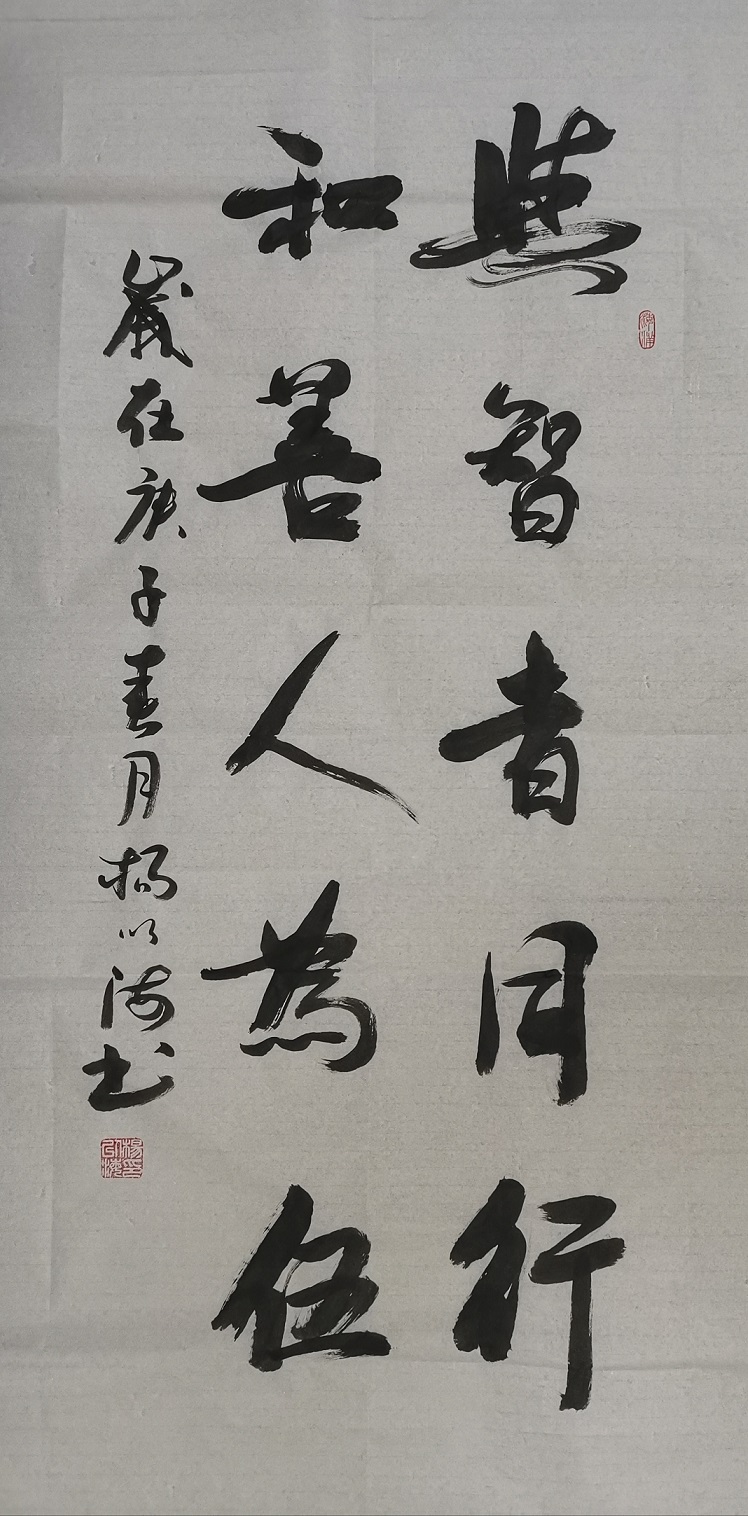 與智者同行
和善人為伍
歲在庚子春月楊以海書